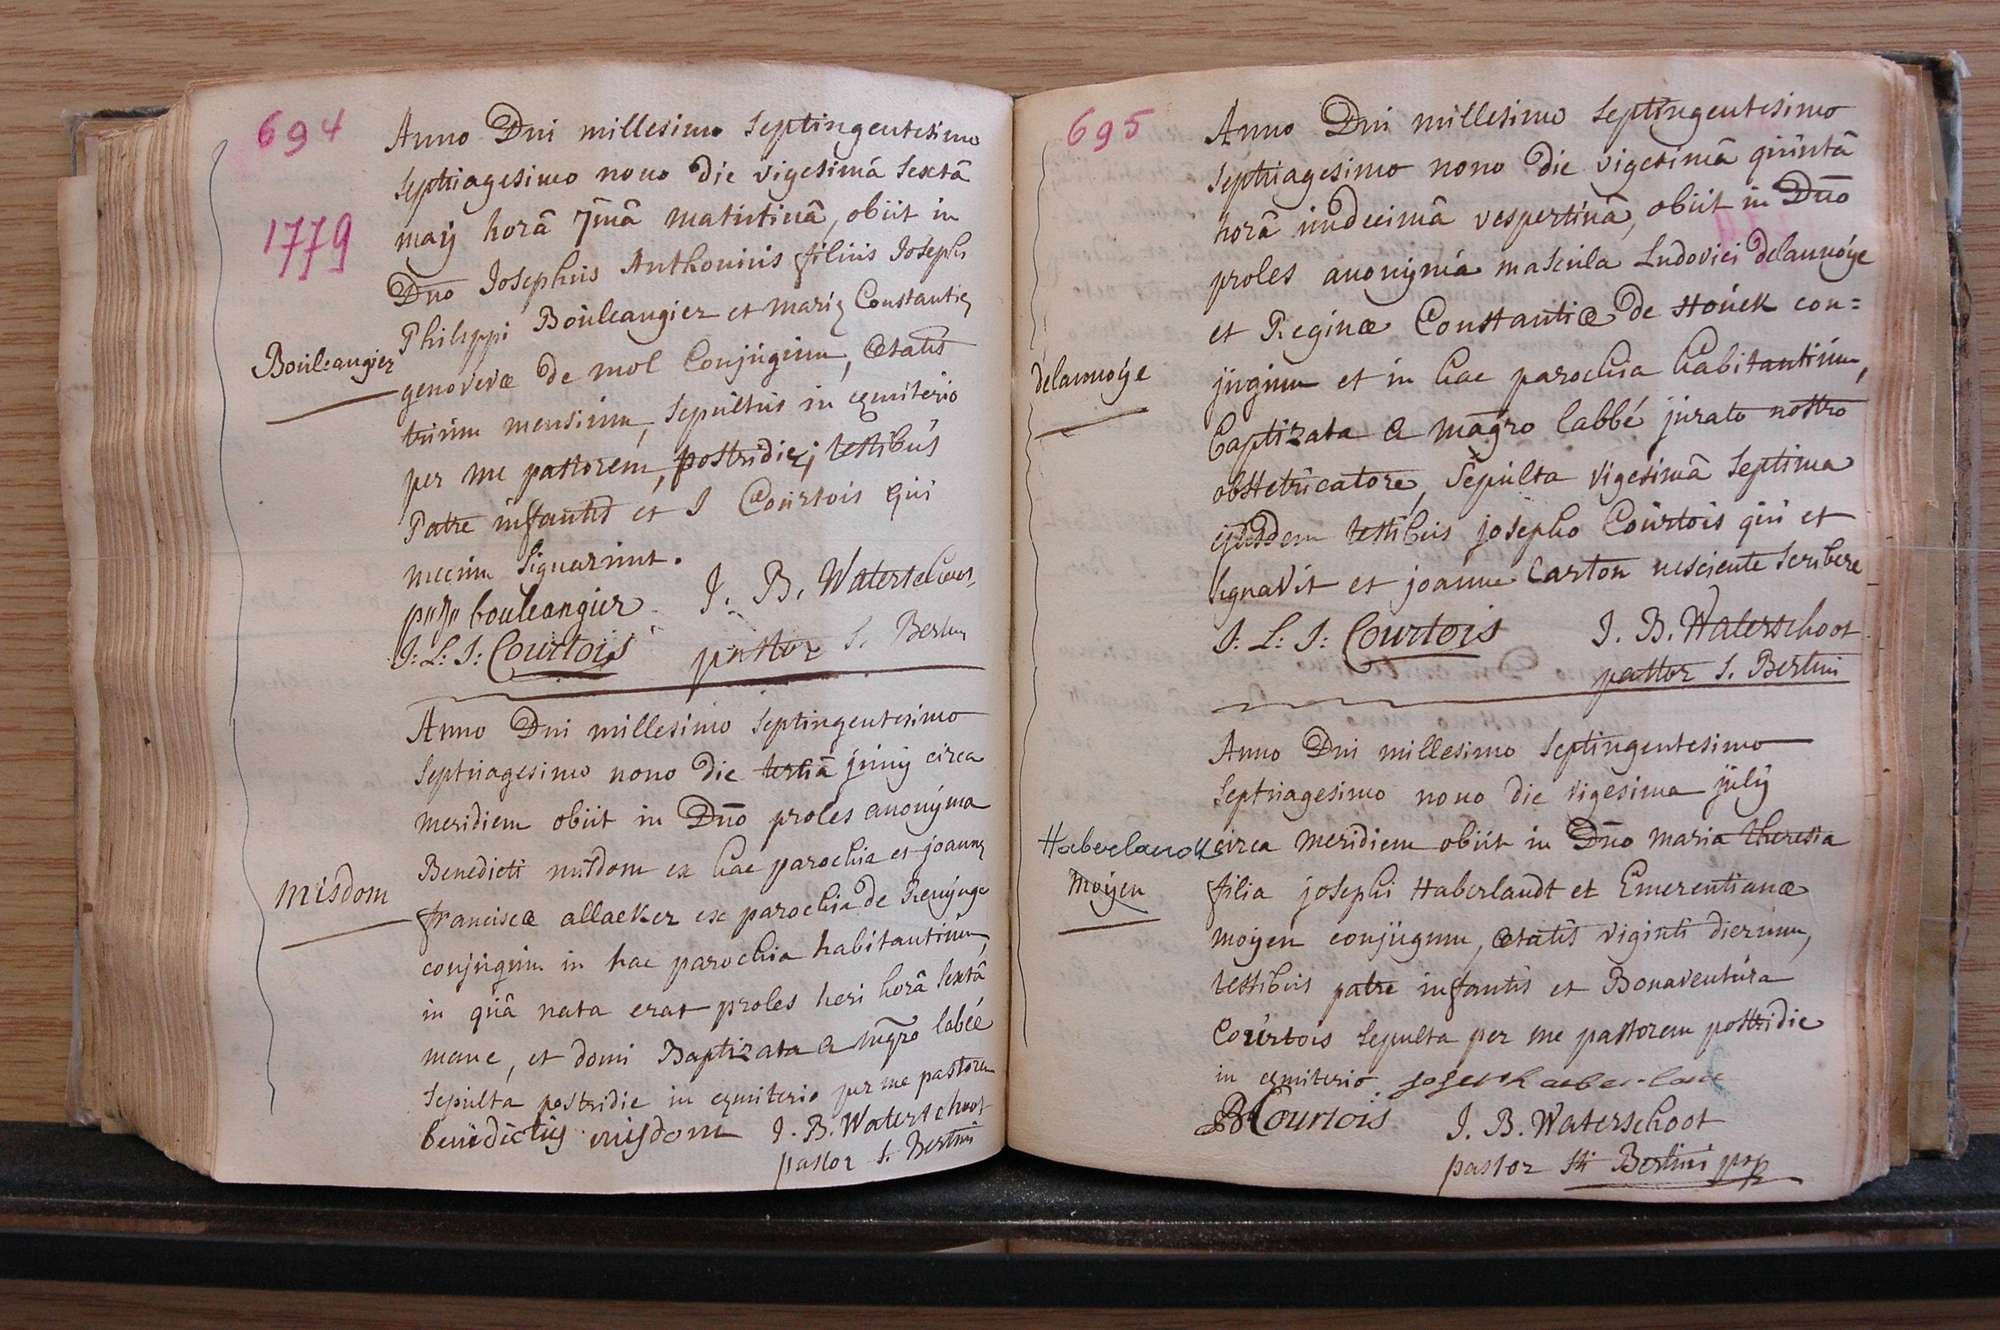 694
1779
Anno Dni millesimo septingentesimo
septuagesimo nono die vigesimâ sextâ
maÿ horâ 7imâ matutinâ, obiit in
Dno Josephus Anthonius filius Josephi
Philippi Bouleangier et mariæ Constantiæ
Bouleangier
genovevæ de mol conjugum, ætatis
trium mensium, sepultus in cæmiterio
per me pastorem, postridie; testibus
Patre infantis et J Courtois qui
mecum signarunt.
bouleangier J. B. Waterschoot
J: L: J: Courtois pastor S. Bertini
Anno Dni millesimo septingentesimo
septuagesimo nono die tertiâ junÿ circa
meridiem obiit in Dno proles anonÿma
Benedicti misdom ex hac parochia et joannæ
misdom
franciscæ allaeker ex parochia de Renÿnge
conjugum in hac parochia habitantium,
in quâ nata erat proles heri horâ sextâ
mane, et domi Baptizata a mgro labée
sepulta postridie in cæmiterio per me pastorem
benedictus misdom J. B. Waterschoot
pastor S. Bertini
695
Anno Dni millesimo septingentesimo
septuagesimo nono die vigesimâ quintâ
horâ undecimâ vespertinâ, obiit in Dno
proles anonÿma mascula Ludovici delannóÿe
et Reginæ Constantiæ de Houck con=
delannoÿe
jugum et in hac parochia habitantium,
baptizata a magro labbé jurato nostro
obstetricatore, sepulta vigesimâ septima
ejusdem testibus josepho Courtois qui et
signavit et joanne Carton nesciente scribere
J: L: J: Courtois J. B. Waterschoot
pastor S. Bertini
Anno Dni millesimo septingentesimo
septuagesimo nono die vigesima julÿ
Haberlandt circa meridiem obiit in Dno maria theresia
moÿen
filia josephi Haberlandt et Emerentianæ
moÿen conjugum, ætatis viginti dierum,
testibus patre infantis et Bonaventura
Courtois sepulta per me pastorem postridie
in cæmiterio
B Courtois J. B. Waterschoot
pastor Sti Bertini